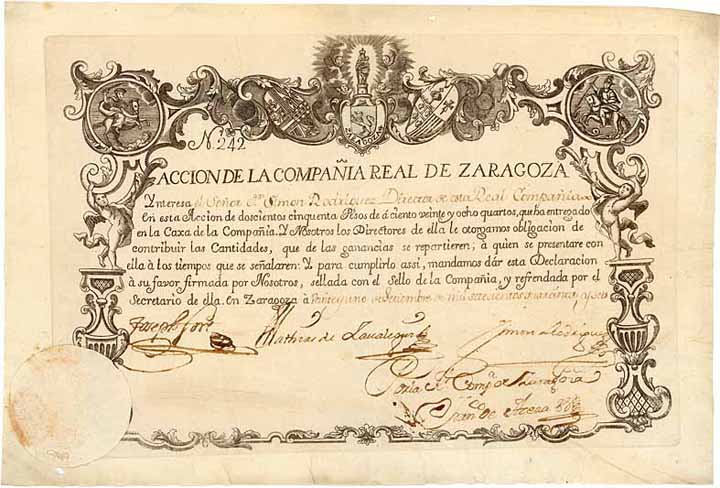 ZARAGOZA
N.º 242
ACCION DE LA COMPAÑIA REAL DE ZARAGOZA
Ynteresa el Señor Dn. Simon Rodriguez Director de esta Real Compañia
En esta Accion de doscientos cinquenta Pesos de á ciento veinte y ocho quartos, que ha entregado
en la Caxa de la Compañia. Y Nosotros los Directores de ella le otorgamos obligacion de
contribuir las Cantidades, que de las ganancias se repartieren, à quien se presentare con
ella à los tiempos que se señalaren: Y para cumplirlo assi, mandamos dár esta Declaracion
à su favor firmada por Nosotros, sellada con el Sello de la Compañia, y refrendada por el
Secretario de ella. En Zaragoza à veinte y uno de de mil setecientos quarenta y seis
Joseph
Mathias de
Simon Rodriguez
Por la Rl. Compa. de Zaragoza